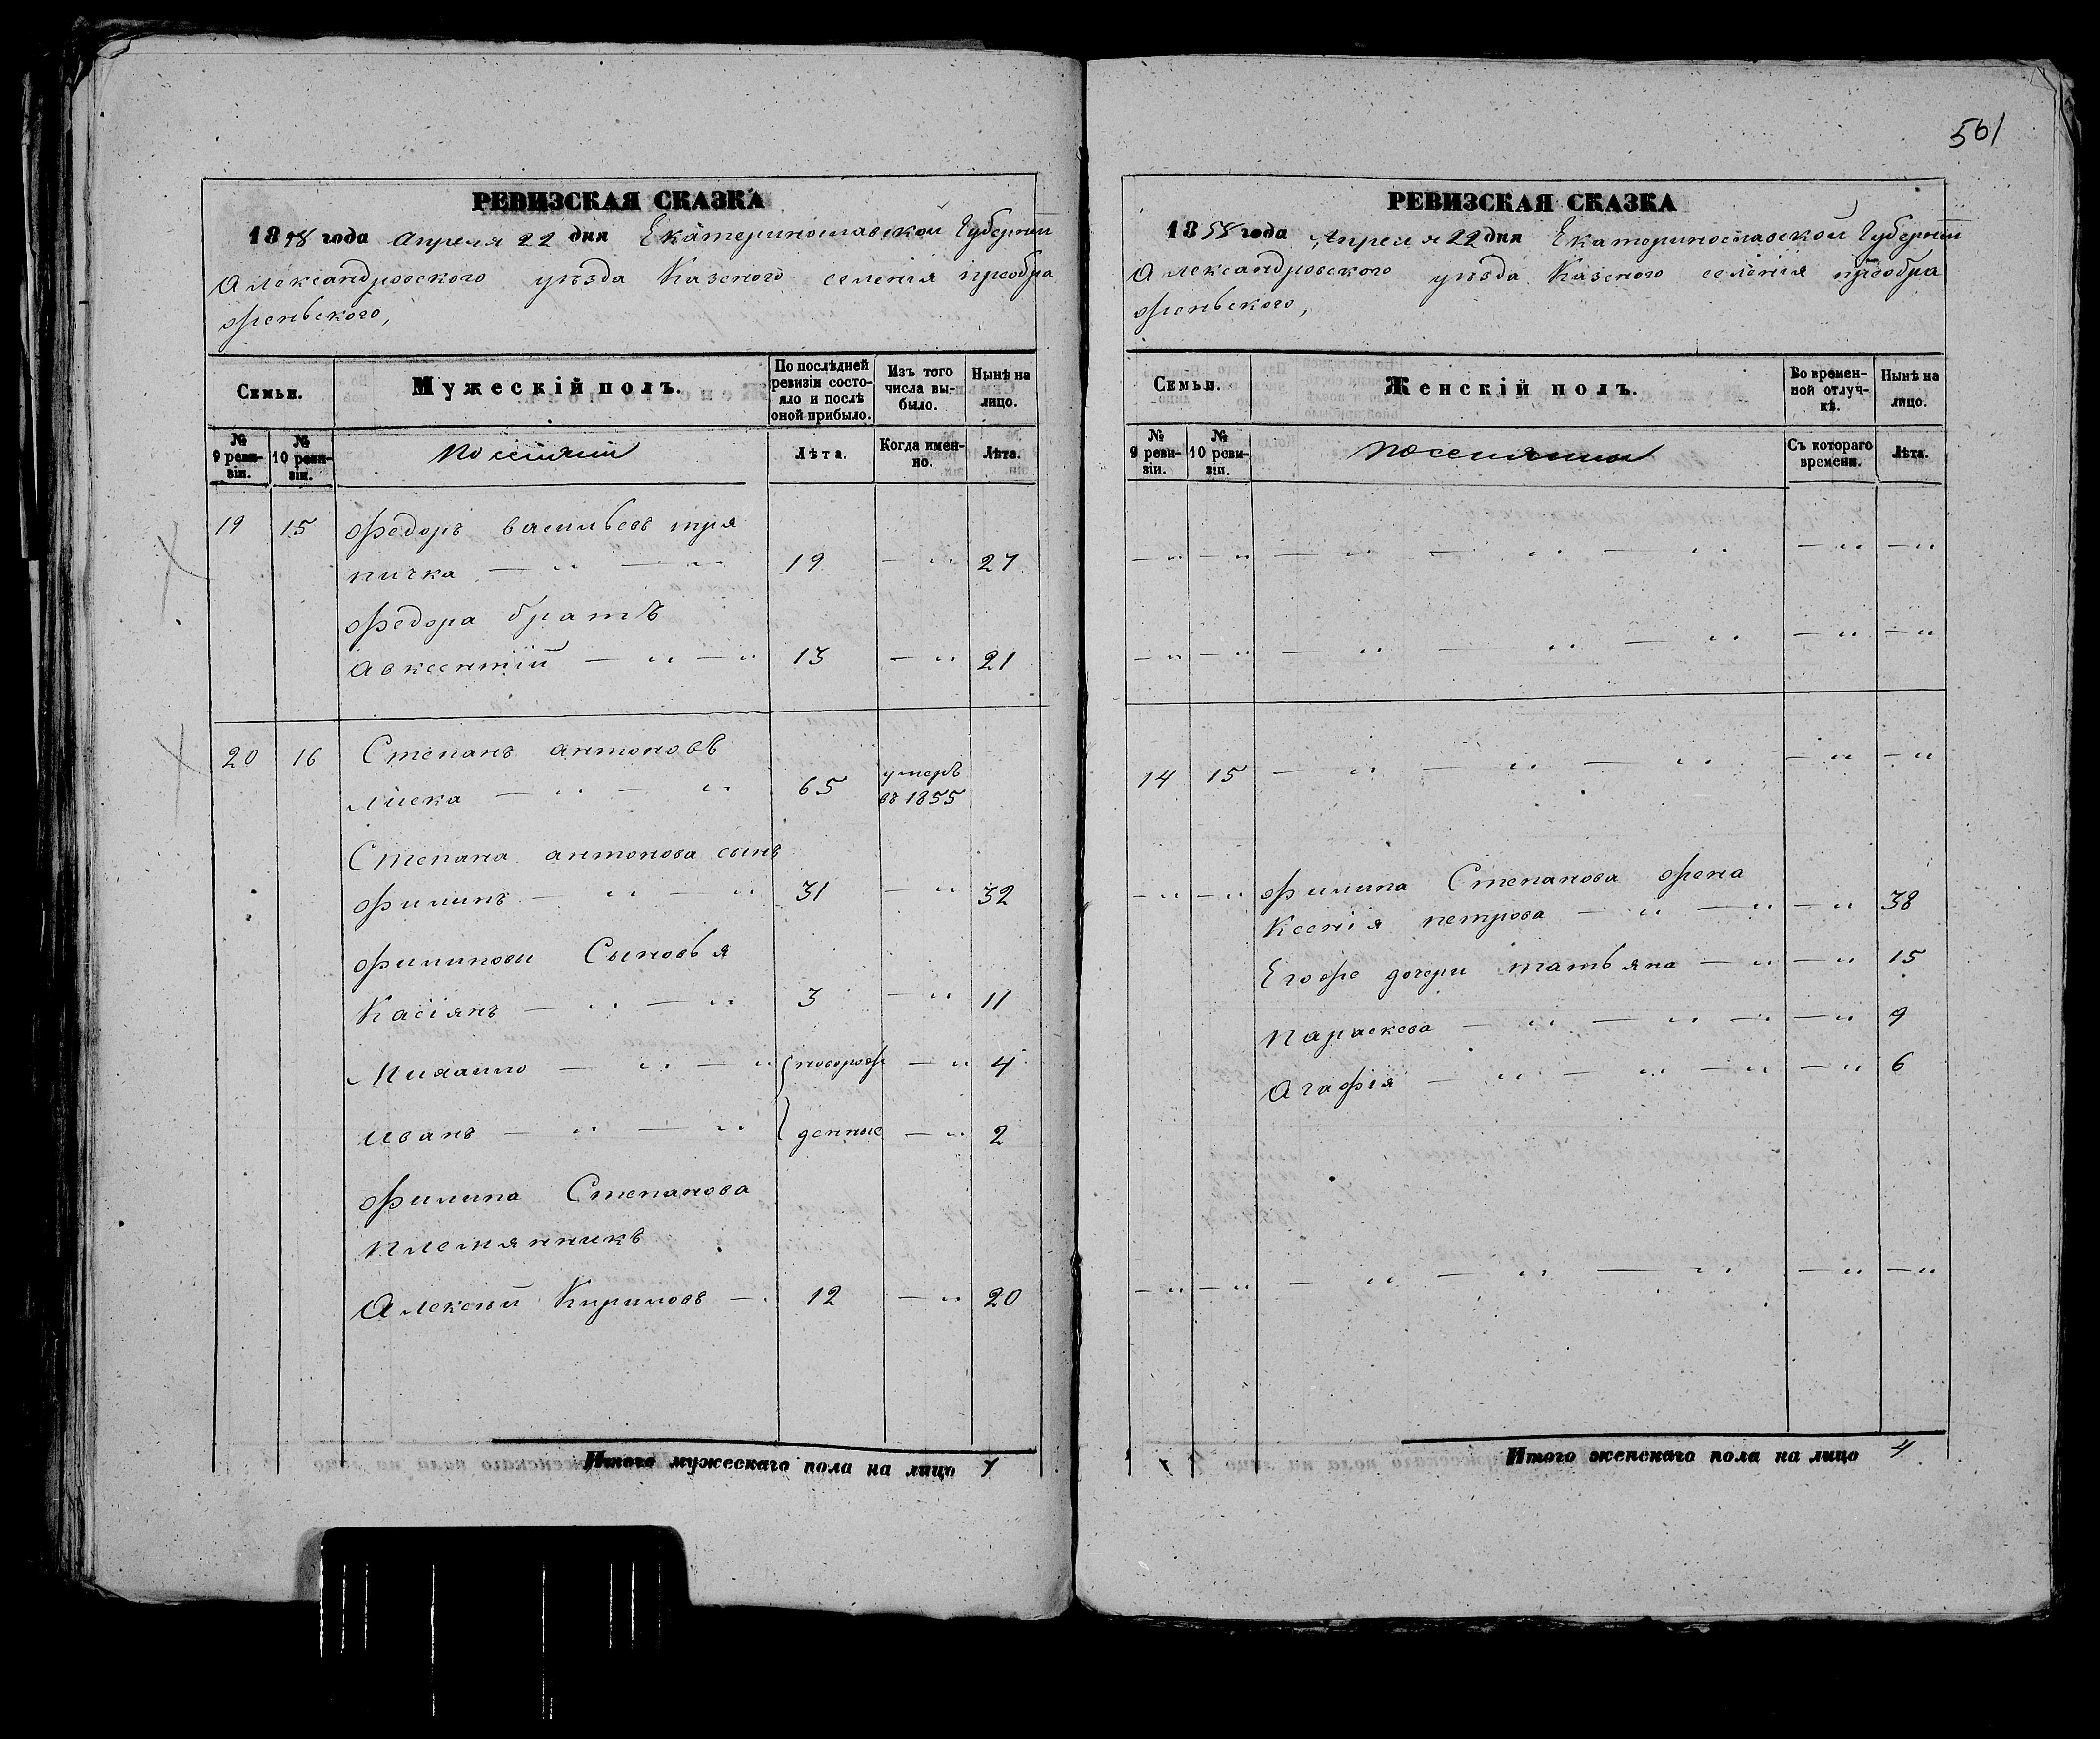 561
РЕВИЗСКАЯ СКАЗКА
1858 года Апреля 22 дня Екатеринославской Губерніи
Александровского уѣзда Казеного селенія преобра
женьского,
Семьи.
Мужескій полъ.
По послѣдней ревизіи состояло и послѣ оной прибыло.
Изъ того числа выбыло.
Нынѣ на лицо.
№ 9 ревизіи.
№ 10 ревизіи.
Лѣта.
Когда именно.
Лѣта.
19 15 Федоръ васильевъ тря
пичка — " — " 19 — " 27
Федора братъ
Авксентій — " — " 13 — " 21
20 16 Степанъ антоновъ
Лиска — " — " 65 умеръ въ 1855
Степана антонова сынъ
Филипъ — " — " 31 — " 32
Филиповы Сыновья
Касіянъ — " — " 3 — " 11
Михаило — " — " новорож — " 4
иванъ — " — " денные — " 2
Филипа Степанова
племянникъ
Алексѣй Кириловъ — 12 — " 20
Итого мужескаго пола на лицо 7
РЕВИЗСКАЯ СКАЗКА
1858 года Апреля 22 дня Екатеринославской Губерніи
Александровского уѣзда Казеного селенія преобра
женьского,
Семьи.
Женскій полъ.
Во временной отлучкѣ.
Нынѣ на лицо.
№ 9 ревизіи.
№ 10 ревизіи.
Съ котораго времени.
Лѣта.
— " — " — " — " — " — " — "
— " — " — " — " — " — " — "
14 15 — " — " — " — " — "
— " — " Филипа Степанова жена
Ксенія петрова — " — " — " 38
Егоже дочери татьяна — " — " 15
Параскева — " — " — " — " 9
Агафія — " — " — " — " 6
— " — " — " — " — " — " — "
Итого женскаго пола на лицо 4